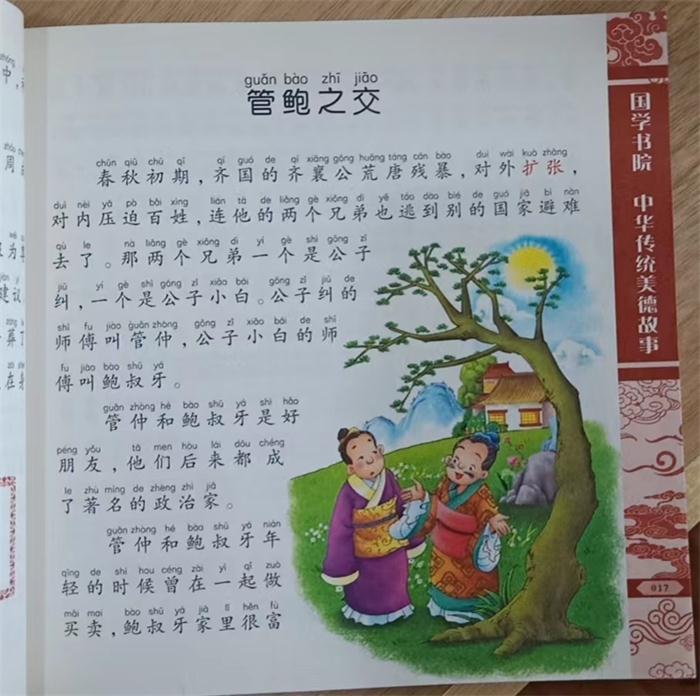 guǎn bào zhī jiāo
管鲍之交
chūn qiū chū qī qí guó de qí xiāng gōng huāng táng cán bào duì wài kuò zhāng
春秋初期，齐国的齐襄公荒唐残暴，对外扩张，
duì nèi yā pò bǎi xìng lián tā de liǎng gè xiōng dì yě táo dào bié de guó jiā bì nàn
对内压迫百姓，连他的两个兄弟也逃到别的国家避难
qù le nà liǎng gè xiōng dì yí gè shì gōng zǐ
去了。那两个兄弟一个是公子
jiū yí gè shì gōng zǐ xiǎo bái gōng zǐ jiū de
纠，一个是公子小白。公子纠的
shī fu jiào guǎn zhòng gōng zǐ xiǎo bái de shī
师傅叫管仲，公子小白的师
fu jiào bào shū yá
傅叫鲍叔牙。
guǎn zhòng hé bào shū yá shì hǎo
管仲和鲍叔牙是好
péng yǒu tā men hòu lái dōu chéng
朋友，他们后来都成
le zhù míng de zhèng zhì jiā
了著名的政治家。
guǎn zhòng hé bào shū yá nián
管仲和鲍叔牙年
qīng de shí hou céng zài yì qǐ zuò
轻的时候曾在一起做
mǎi mai bào shū yá jiā lǐ hěn fù
买卖，鲍叔牙家里很富
国学书院 中华传统美德故事
017
中，
周
为
建议
葬了
在